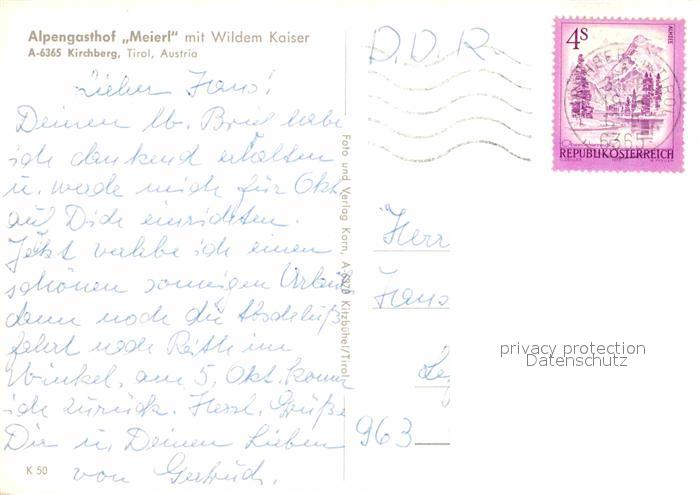 Alpengasthof „Meierl" mit Wildem Kaiser
A-6365 Kirchberg, Tirol, Austria
Lieber Hans!
Deinen lb. Brief habe
ich dankend erhalten
u. werde mich für Okt.
auf Dich einrichten.
Jetzt verlebe ich einen
schönen sonnigen Urlaub
dann noch die Abschluß
fahrt nach Reith im
Winkel, am 5. Okt. komme
ich zurück. Herzl. Grüße
Dir u. Deinen Lieben
von Gertrud.
K 50
Foto und Verlag Korn, A-6370 Kitzbühel/Tirol
D.D.R.
4S
ALMSEE
REPUBLIK ÖSTERREICH
6365
Herr
Hans
963
privacy protection
Datenschutz